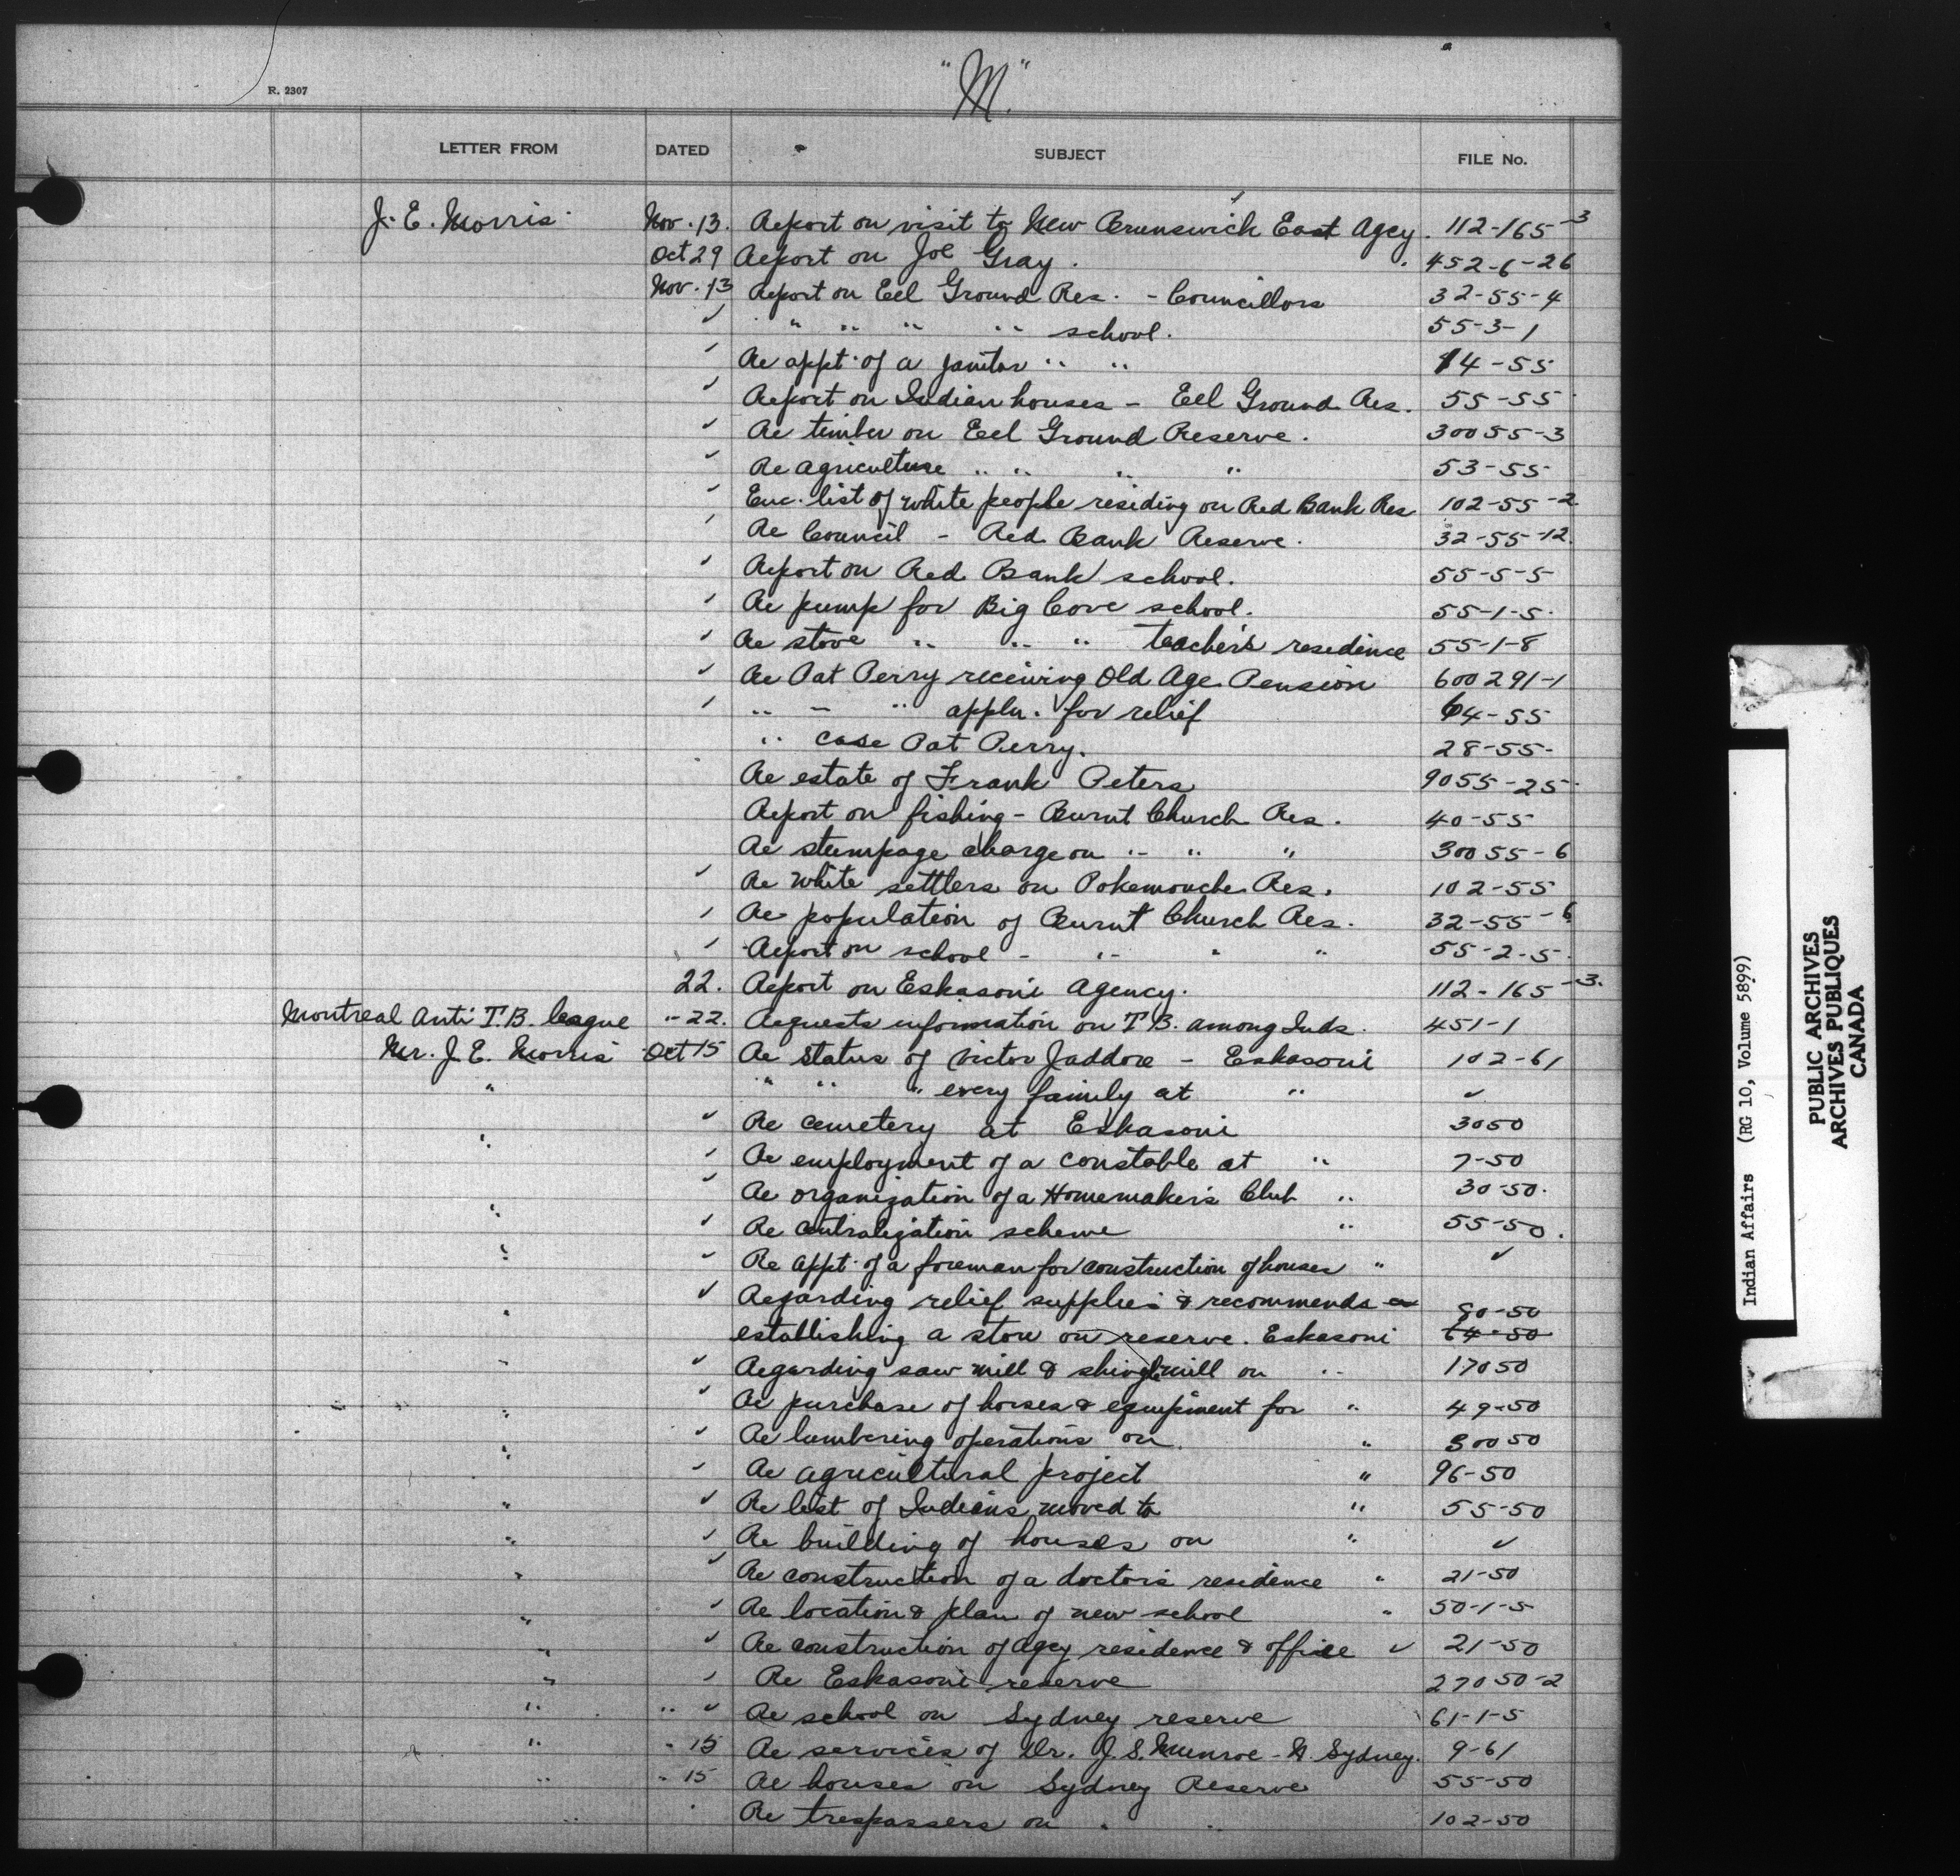 "M."
R. 2307
LETTER FROM DATED SUBJECT FILE No.
J. E. Morris Nov. 13. Report on visit to New Brunswick East Agcy. 112-165-3
Oct 29 Report on Joe Gray. 452-6-26
Nov. 13 Report on Eel Ground Res. - Councillors 32-55-4
✓ " " " " school. 55-3-1
✓ Re appt. of a janitor " " 14-55
✓ Report on Indian houses - Eel Ground Res. 55-55
✓ Re timber on Eel Ground Reserve. 30055-3
✓ Re agriculture " " " " 53-55
✓ Enc. list of white people residing on Red Bank Res 102-55-2
✓ Re Council - Red Bank Reserve. 32-55-12.
✓ Report on Red Bank school. 55-5-5
✓ Re pump for Big Cove school. 55-1-5.
✓ Re stove " " " teacher's residence 55-1-8
✓ Re Pat Perry receiving Old Age Pension 600291-1
✓ " " " appln. for relief 64-55
" case Pat Perry. 28-55-
Re estate of Frank Peters 9055-25.
Report on fishing - Burnt Church Res. 40-55
Re stumpage charge on " " " 30055-6
✓ Re white settlers on Pokemouche Res. 102-55
✓ Re population of Burnt Church Res. 32-55-6
✓ Report on school - " " " 55-2-5.
22. Report on Eskasoni Agency. 112-165-3.
Montreal Anti T.B. league " 22. Requests information on T.B. among Inds. 451-1
Mr. J. E. Morris Oct 15 Re status of Victor Jaddore - Eskasoni 102-61
" " " " every family at " ✓
" ✓ Re cemetery at Eskasoni 3050
✓ Re employment of a constable at " 7-50
✓ Re organization of a Homemaker's Club " 30-50.
" ✓ Re centralization scheme " 55-50.
" ✓ Re appt. of a foreman for construction of houses " ✓
" ✓ Regarding relief supplies & recommends 80-50
establishing a store on reserve. Eskasoni 64-50
" ✓ Regarding saw mill & shingle mill on " 17050
" ✓ Re purchase of horses & equipment for " 49-50
" ✓ Re lumbering operations on " 30050
✓ Re agricultural project " 96-50
" ✓ Re list of Indians moved to " 55-50
" ✓ Re building of houses on " ✓
" ✓ Re construction of a doctor's residence " 21-50
" ✓ Re location & plan of new school " 50-1-5
" ✓ Re construction of agcy residence & office ✓ 21-50
" ✓ Re Eskasoni reserve 27050-2
" " ✓ Re school on Sydney reserve 61-1-5
" " 15 Re services of Dr. J. S. Munroe - N. Sydney. 9-61
" " 15 Re houses on Sydney Reserve 55-50
" Re trespassers on " " 102-50
Indian Affairs (RG 10, Volume 5899)
PUBLIC ARCHIVES
ARCHIVES PUBLIQUES
CANADA